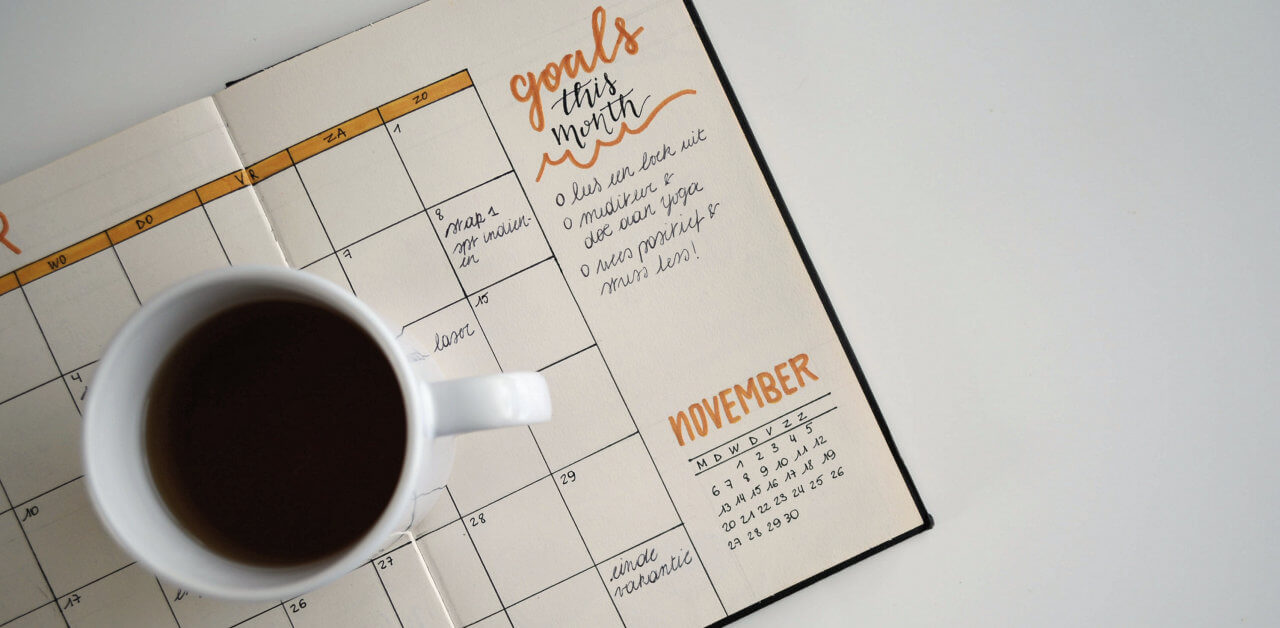 goals
this
month
o lees een boek uit
o mediteer &
doe aan yoga
o wees positief &
stress less!
R
WO
DO
VR
ZA
ZO
1
7
8
stap 1
spt indien-
en
15
laser
4
10
17
26
27
28
29
einde
vakantie
NOVEMBER
M D W D V Z Z
1 2 3 4 5
6 7 8 9 10 11 12
13 14 15 16 17 18 19
20 21 22 23 24 25 26
27 28 29 30